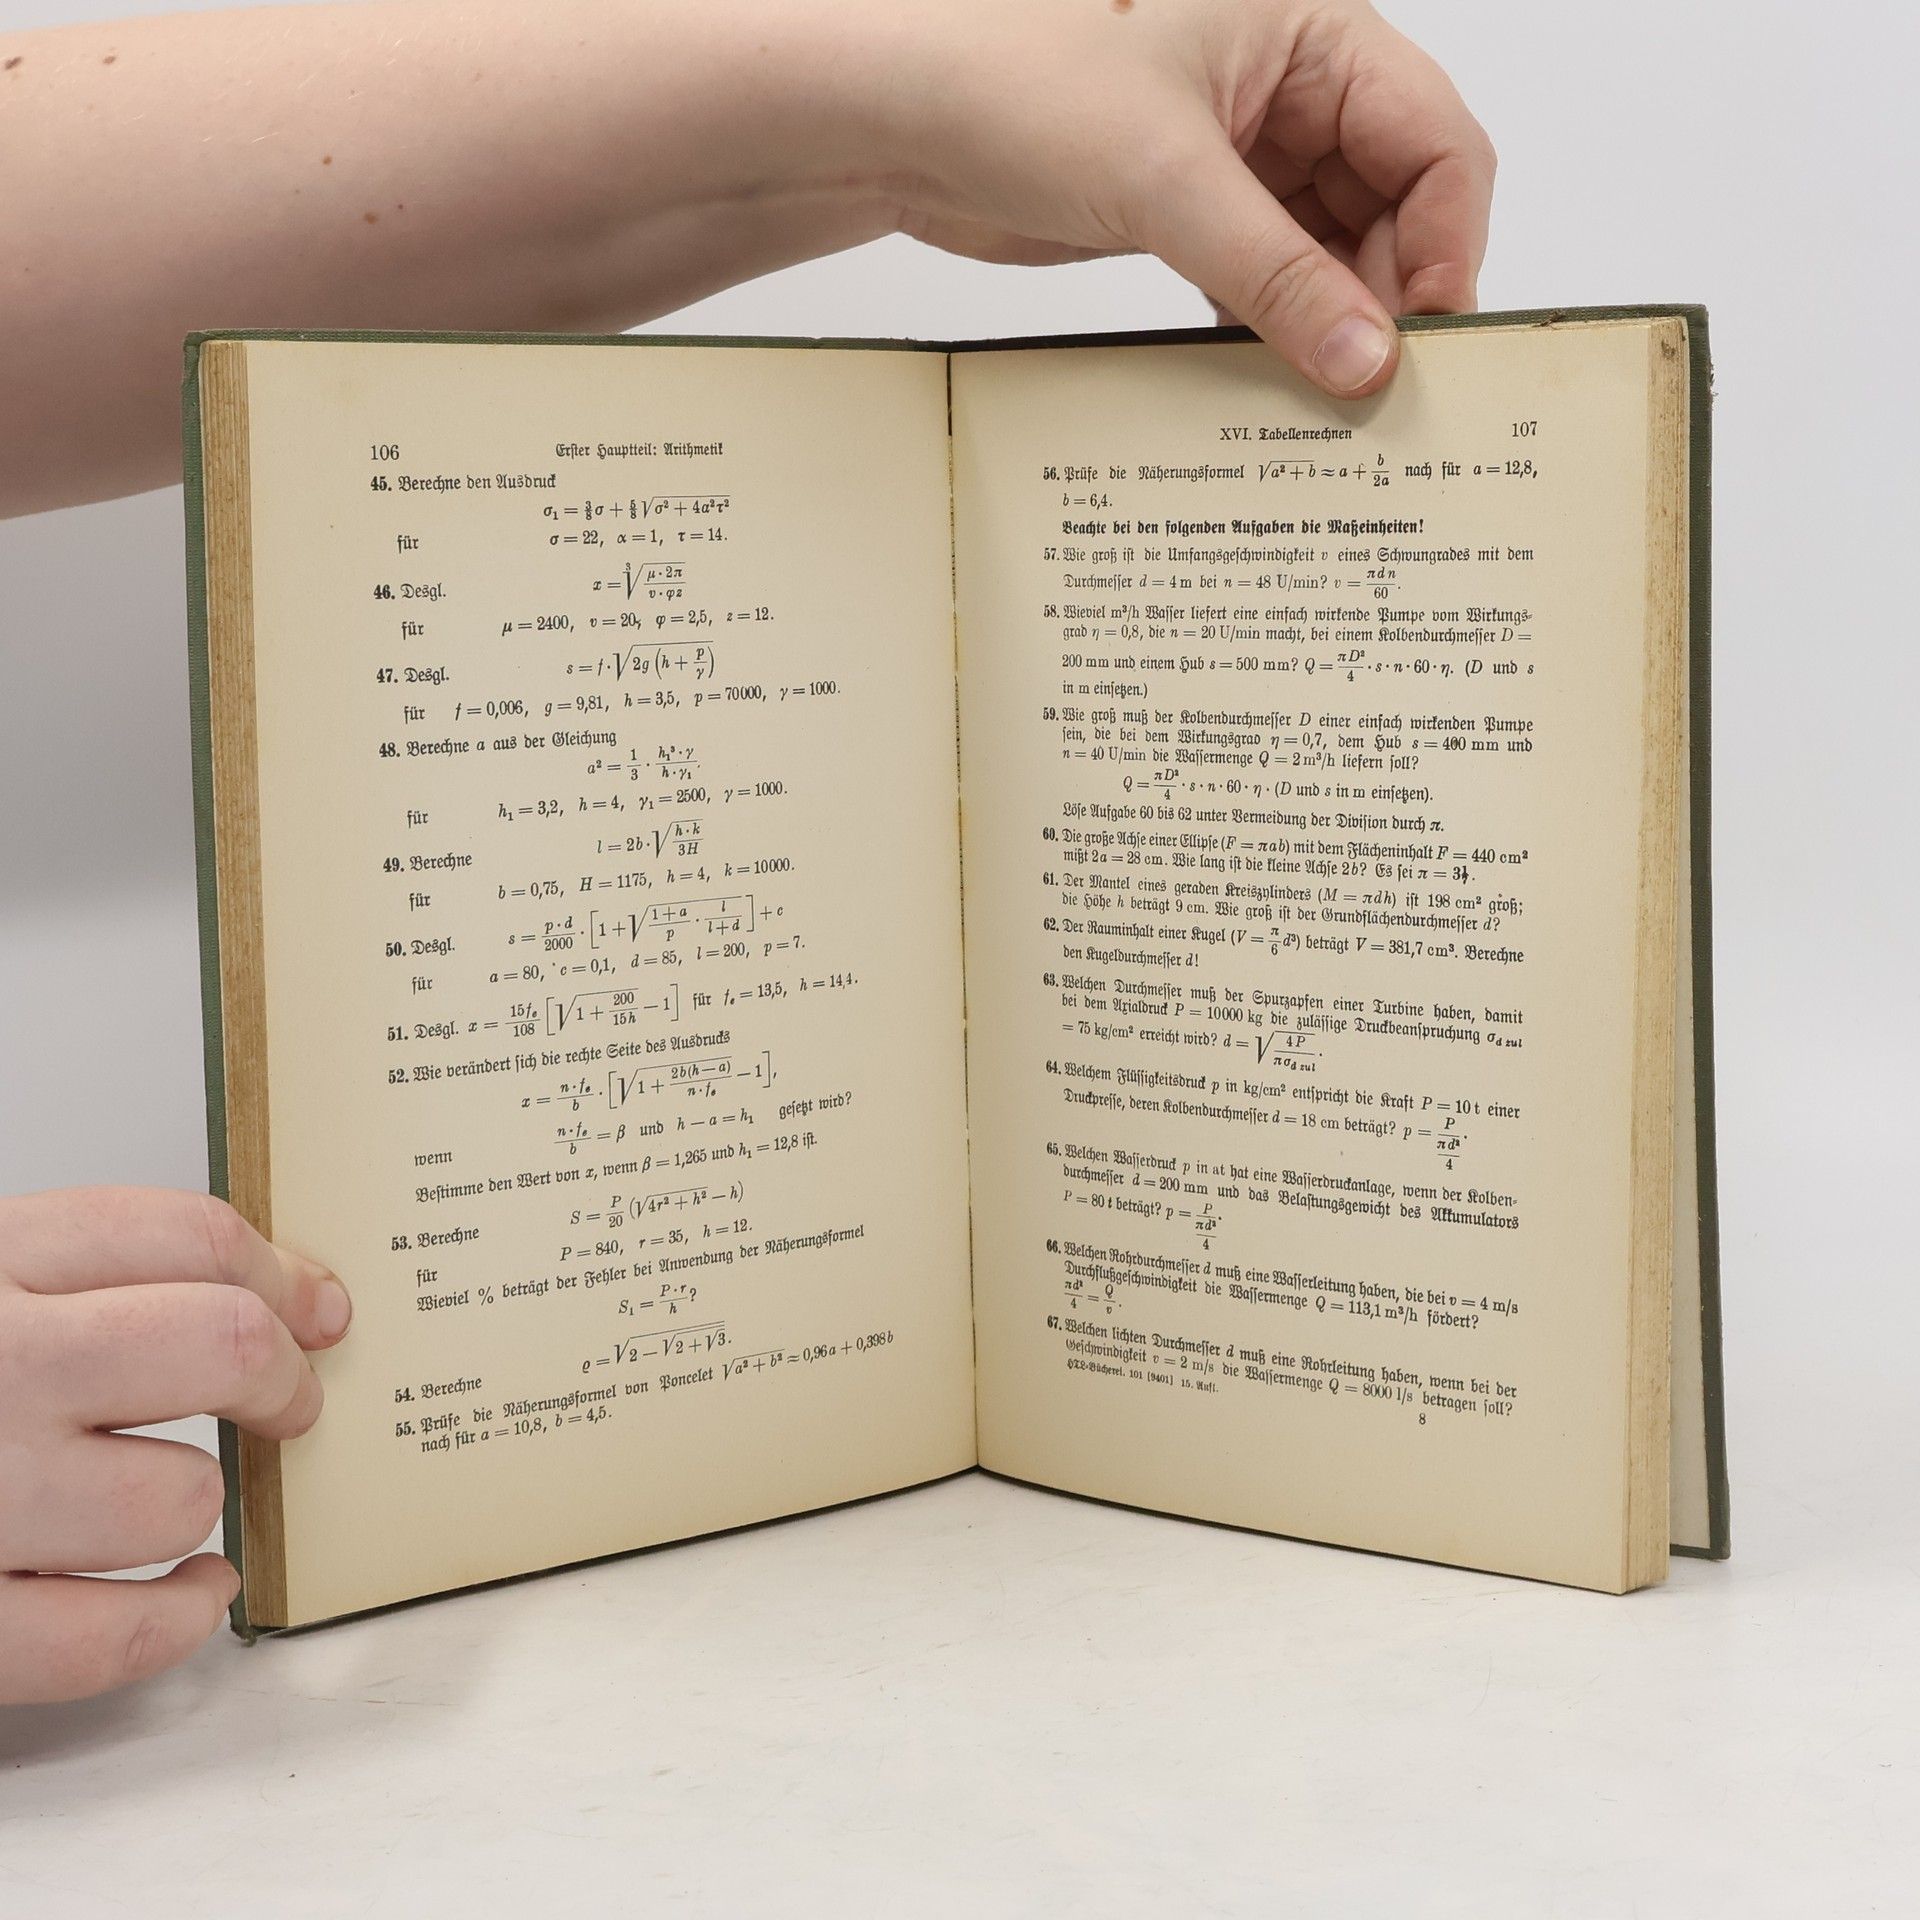 106 Erster Hauptteil: Arithmetik
45. Berechne den Ausdruck
σ₁ = ⅜σ + ⅝√(σ² + 4α²τ²)
für σ = 22, α = 1, τ = 14.
46. Desgl. x = ∛(μ · 2π / v · φz)
für μ = 2400, v = 20, φ = 2,5, z = 12.
47. Desgl. s = f · √(2g (h + p/γ))
für f = 0,006, g = 9,81, h = 3,5, p = 70000, γ = 1000.
48. Berechne a aus der Gleichung
a² = 1/3 · h₁³ · γ / h · γ₁.
für h₁ = 3,2, h = 4, γ₁ = 2500, γ = 1000.
49. Berechne l = 2b · √(h · k / 3H)
für b = 0,75, H = 1175, h = 4, k = 10000.
50. Desgl. s = p · d / 2000 · [1 + √(1 + a / p · l / l + d)] + c
für a = 80, c = 0,1, d = 85, l = 200, p = 7.
51. Desgl. x = 15fₑ / 108 [√(1 + 200 / 15h) − 1] für fₑ = 13,5, h = 14,4.
52. Wie verändert sich die rechte Seite des Ausdrucks
x = n · fₑ / b · [√(1 + 2b(h − a) / n · fₑ) − 1],
wenn n · fₑ / b = β und h − a = h₁ gesetzt wird?
Bestimme den Wert von x, wenn β = 1,265 und h₁ = 12,8 ist.
53. Berechne S = P/20 (√(4r² + h²) − h)
für P = 840, r = 35, h = 12.
Wieviel % beträgt der Fehler bei Anwendung der Näherungsformel
S₁ = P · r / h?
54. Berechne ϱ = √(2 − √(2 + √3)).
55. Prüfe die Näherungsformel von Poncelet √(a² + b²) ≈ 0,96a + 0,398b
nach für a = 10,8, b = 4,5.
XVI. Tabellenrechnen 107
56. Prüfe die Näherungsformel √(a² + b) ≈ a + b/2a nach für a = 12,8,
b = 6,4.
Beachte bei den folgenden Aufgaben die Maßeinheiten!
57. Wie groß ist die Umfangsgeschwindigkeit v eines Schwungrades mit dem
Durchmesser d = 4 m bei n = 48 U/min? v = πdn/60.
58. Wieviel m³/h Wasser liefert eine einfach wirkende Pumpe vom Wirkungs-
grad η = 0,8, die n = 20 U/min macht, bei einem Kolbendurchmesser D =
200 mm und einem Hub s = 500 mm? Q = πD²/4 · s · n · 60 · η. (D und s
in m einsetzen.)
59. Wie groß muß der Kolbendurchmesser D einer einfach wirkenden Pumpe
sein, die bei dem Wirkungsgrad η = 0,7, dem Hub s = 400 mm und
n = 40 U/min die Wassermenge Q = 2 m³/h liefern soll?
Q = πD²/4 · s · n · 60 · η · (D und s in m einsetzen).
Löse Aufgabe 60 bis 62 unter Vermeidung der Division durch π.
60. Die große Achse einer Ellipse (F = πab) mit dem Flächeninhalt F = 440 cm²
mißt 2a = 28 cm. Wie lang ist die kleine Achse 2b? Es sei π = 3⅐.
61. Der Mantel eines geraden Kreiszylinders (M = πdh) ist 198 cm² groß;
die Höhe h beträgt 9 cm. Wie groß ist der Grundflächendurchmesser d?
62. Der Rauminhalt einer Kugel (V = π/6 d³) beträgt V = 381,7 cm³. Berechne
den Kugeldurchmesser d!
63. Welchen Durchmesser muß der Spurzapfen einer Turbine haben, damit
bei dem Axialdruck P = 10000 kg die zulässige Druckbeanspruchung σd zul
= 75 kg/cm² erreicht wird? d = √(4P / πσd zul).
64. Welchem Flüssigkeitsdruck p in kg/cm² entspricht die Kraft P = 10 t einer
Druckpresse, deren Kolbendurchmesser d = 18 cm beträgt? p = P / (πd²/4).
65. Welchen Wasserdruck p in at hat eine Wasserdruckanlage, wenn der Kolben-
durchmesser d = 200 mm und das Belastungsgewicht des Akkumulators
P = 80 t beträgt? p = P / (πd²/4).
66. Welchen Rohrdurchmesser d muß eine Wasserleitung haben, die bei v = 4 m/s
Durchflußgeschwindigkeit die Wassermenge Q = 113,1 m³/h fördert?
πd²/4 = Q/v.
67. Welchen lichten Durchmesser d muß eine Rohrleitung haben, wenn bei der
Geschwindigkeit v = 2 m/s die Wassermenge Q = 8000 l/s betragen soll?
HTL-Bücherei. 101 [9401] 15. Aufl. 8